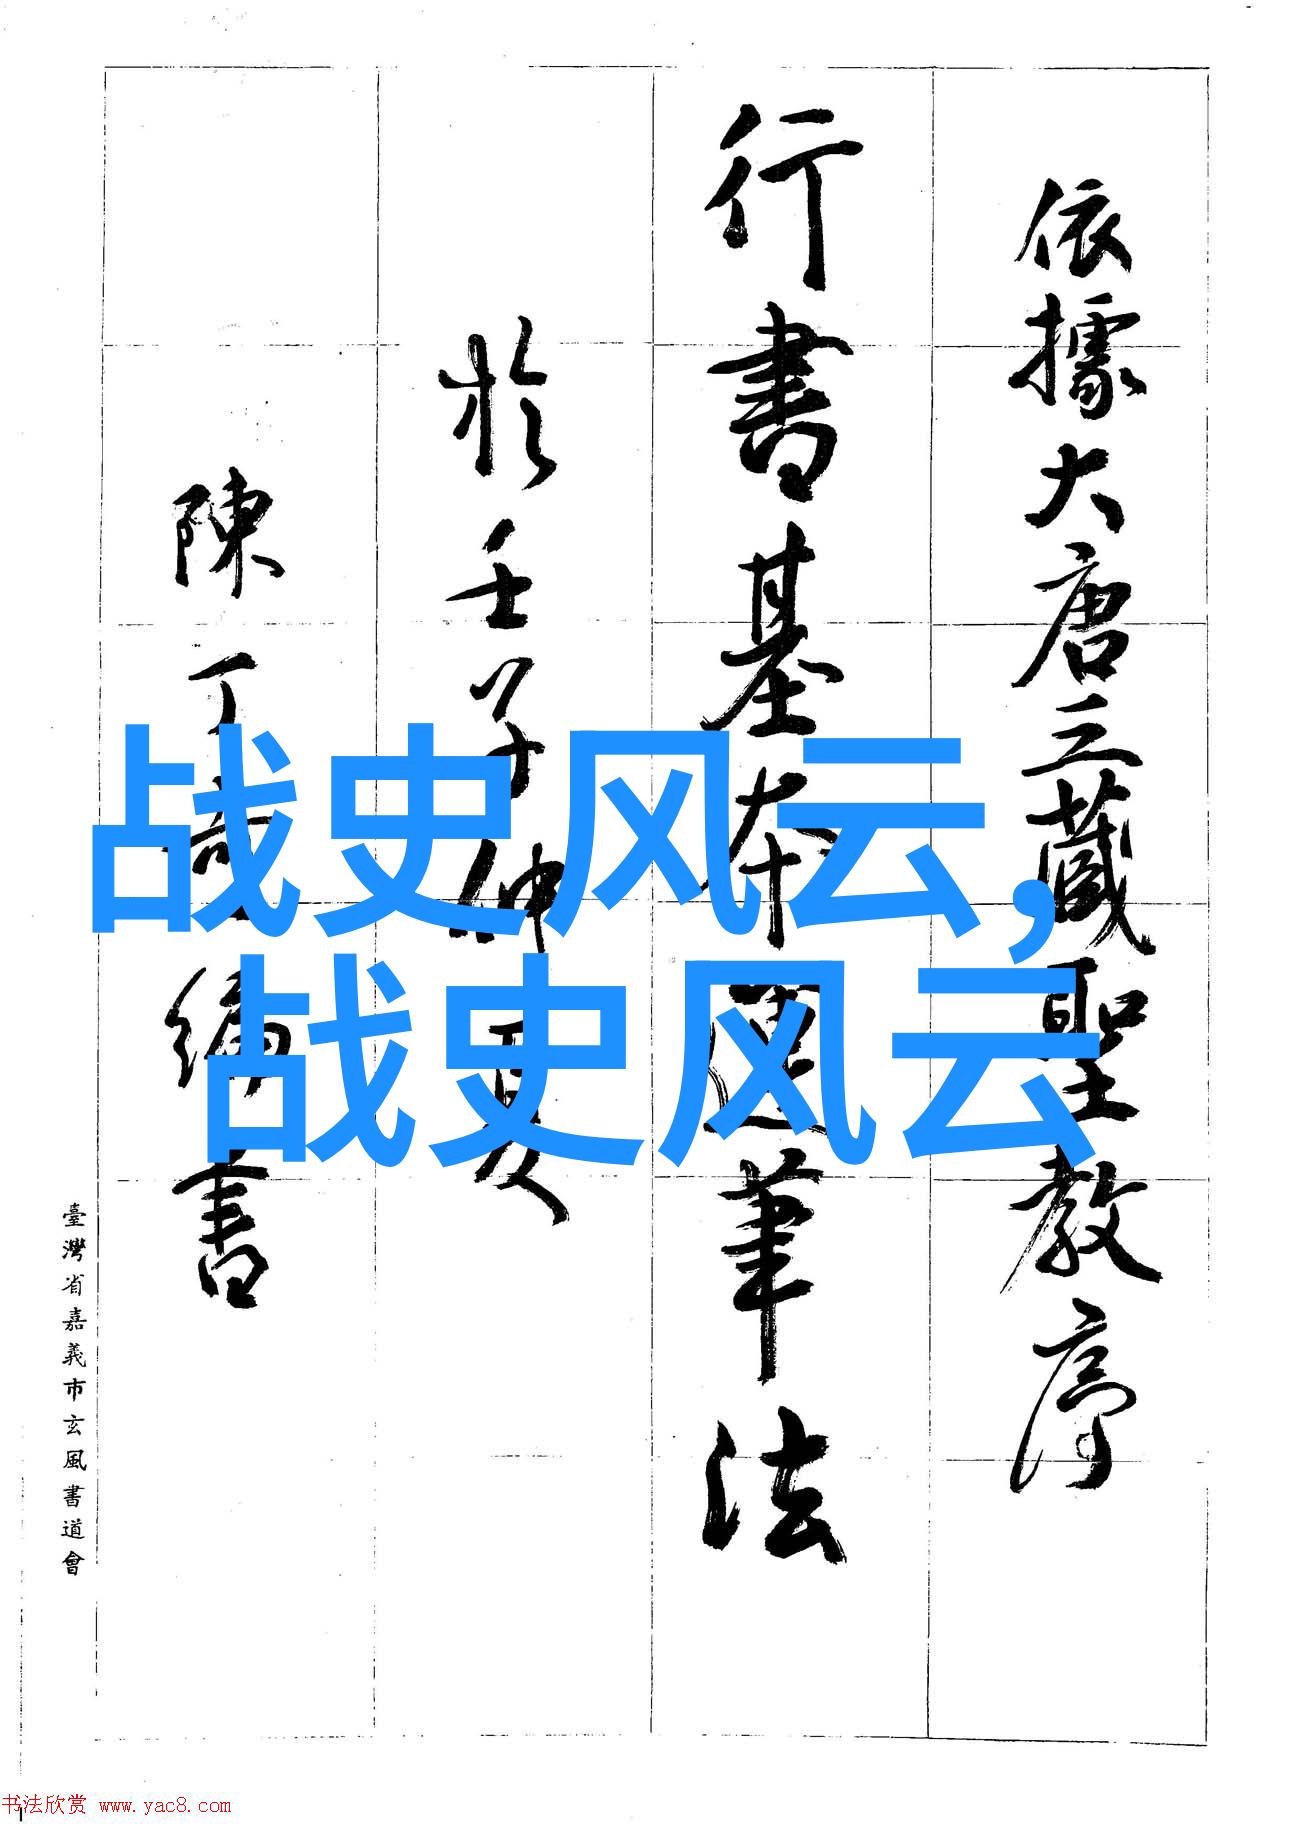 依據大唐三藏聖教序
行書基本運筆法
於壬子仲夏
陳丁奇編書
臺灣省嘉義市玄風書道會
战史风云,
战史风云
书法欣赏 www.yac8.com
1